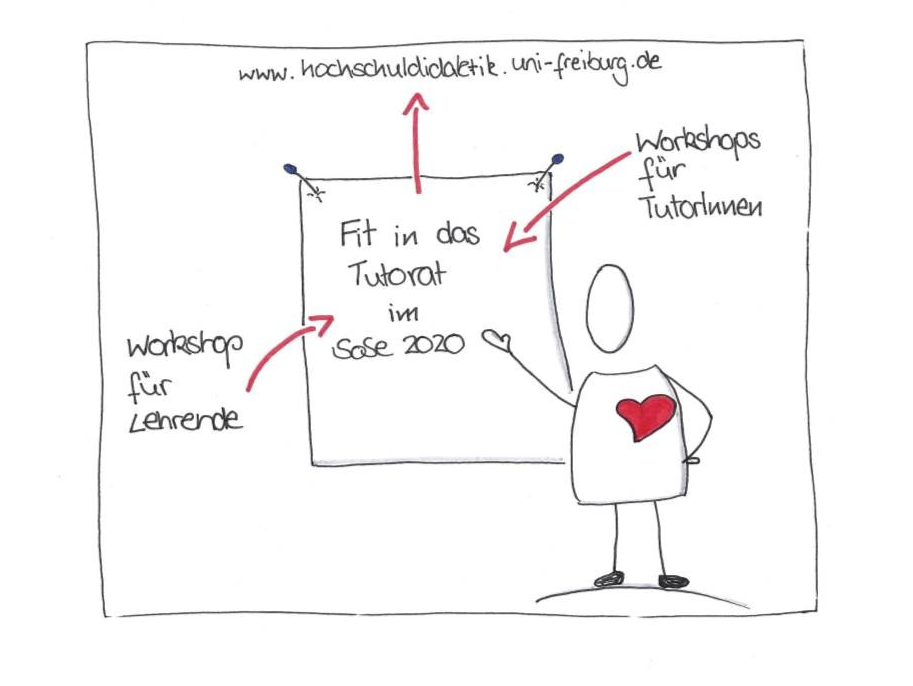 www.hochschuldidaktik.uni-freiburg.de
Workshops
für
TutorInnen
Fit in das
Tutorat
im
SoSe 2020
Workshop
für
Lehrende